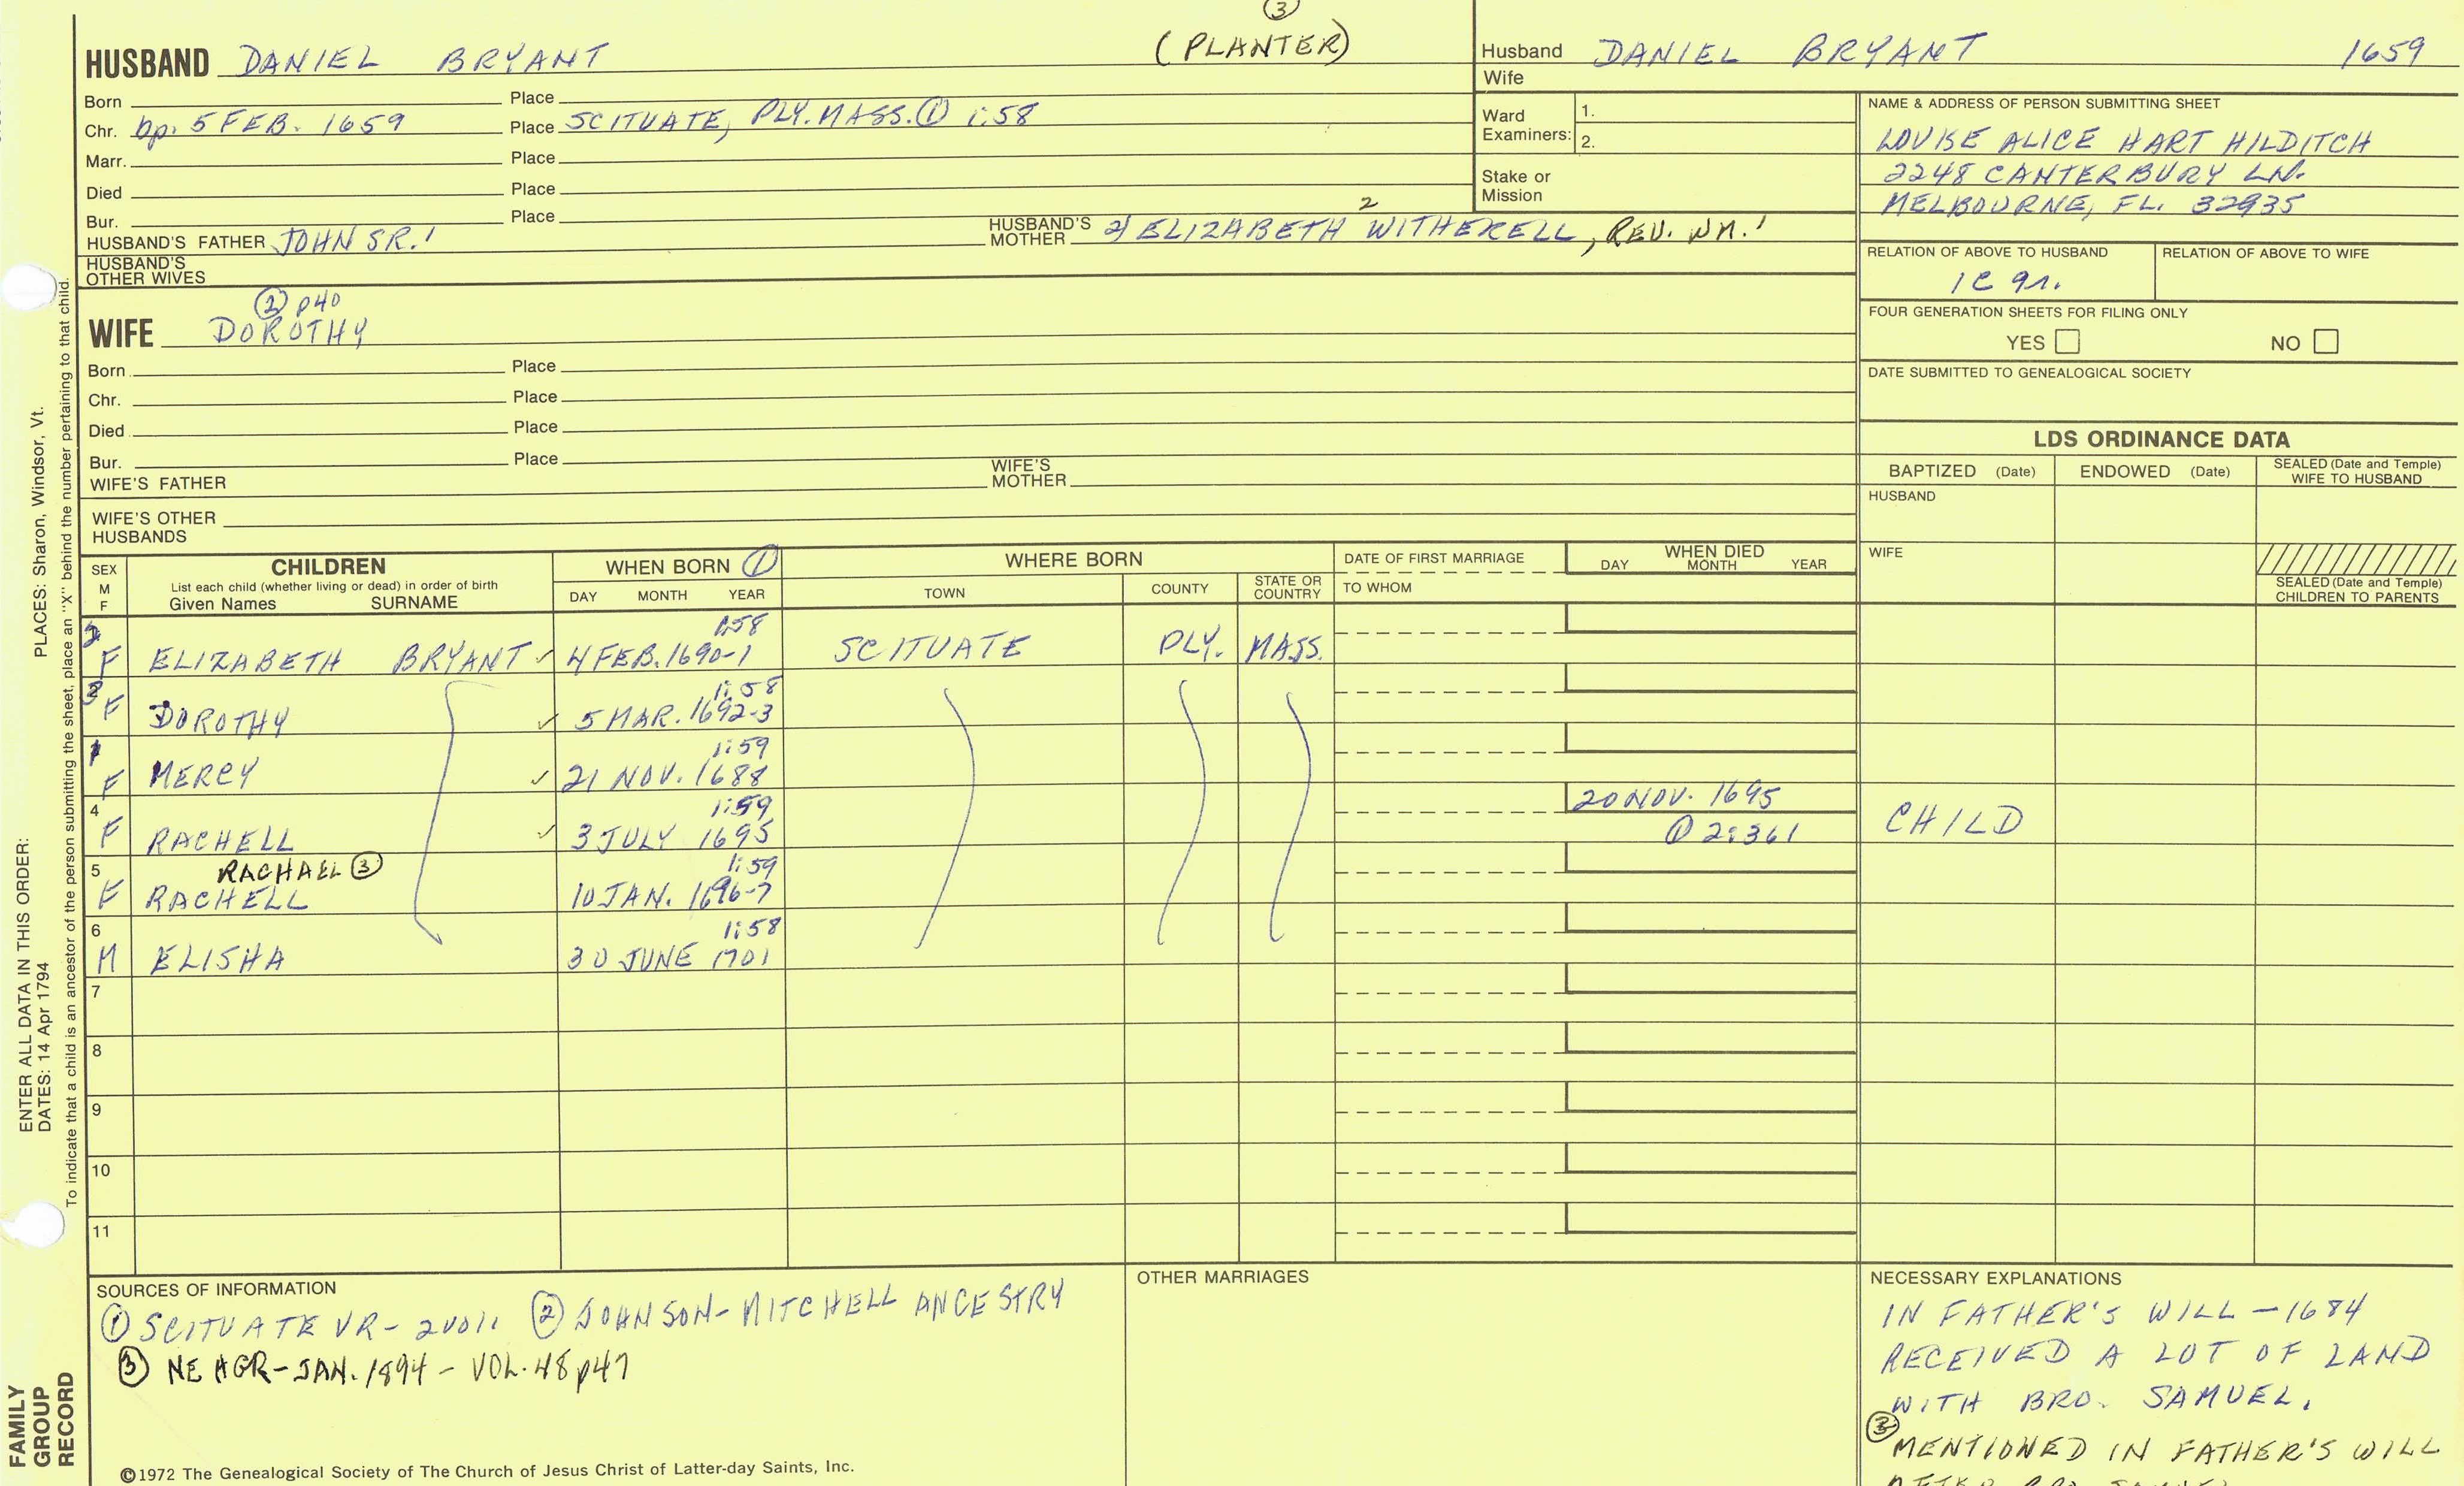 ③
HUSBAND DANIEL BRYANT (PLANTER)
Born Place
Chr. bp. 5 FEB. 1659 Place SCITUATE, PLY. MASS. ① 1:58
Marr. Place
Died Place
Bur. Place
HUSBAND'S FATHER JOHN SR.¹ HUSBAND'S MOTHER 2) ELIZABETH² WITHERELL, REV. WM.¹
HUSBAND'S OTHER WIVES
② p40
WIFE DOROTHY
Born Place
Chr. Place
Died Place
Bur. Place
WIFE'S FATHER WIFE'S MOTHER
WIFE'S OTHER HUSBANDS
Husband DANIEL BRYANT 1659
Wife
Ward Examiners: 1.
2.
Stake or Mission
NAME & ADDRESS OF PERSON SUBMITTING SHEET
LOUISE ALICE HART HILDITCH
2248 CANTERBURY LN.
MELBOURNE, FL. 32935
RELATION OF ABOVE TO HUSBAND RELATION OF ABOVE TO WIFE
1C 9r.
FOUR GENERATION SHEETS FOR FILING ONLY
YES NO
DATE SUBMITTED TO GENEALOGICAL SOCIETY
LDS ORDINANCE DATA
BAPTIZED (Date) ENDOWED (Date) SEALED (Date and Temple) WIFE TO HUSBAND
HUSBAND
WIFE
SEALED (Date and Temple) CHILDREN TO PARENTS
SEX M F
CHILDREN
List each child (whether living or dead) in order of birth
Given Names SURNAME
WHEN BORN ①
DAY MONTH YEAR
WHERE BORN
TOWN COUNTY STATE OR COUNTRY
DATE OF FIRST MARRIAGE
TO WHOM
WHEN DIED
DAY MONTH YEAR
1:58
2 F ELIZABETH BRYANT ✓ 4 FEB. 1690-1 SCITUATE PLY. MASS.
1:58
3 F DOROTHY ✓ 5 MAR. 1692-3
1:59
1 F MERCY ✓ 21 NOV. 1688
1:59 20 NOV. 1695
4 F RACHELL ✓ 3 JULY 1695 ① 2:361 CHILD
RACHAEL ③ 1:59
5 F RACHELL 10 JAN. 1696-7
1:58
6 M ELISHA 30 JUNE 1701
7
8
9
10
11
SOURCES OF INFORMATION
① SCITUATE VR - 2vol. ② JOHNSON-MITCHELL ANCESTRY
③ NEHGR - JAN. 1894 - VOL. 48 p47
OTHER MARRIAGES
NECESSARY EXPLANATIONS
IN FATHER'S WILL - 1684
RECEIVED A LOT OF LAND
WITH BRO. SAMUEL.
③ MENTIONED IN FATHER'S WILL
AFTER BRO. SAMUEL
©1972 The Genealogical Society of The Church of Jesus Christ of Latter-day Saints, Inc.
FAMILY GROUP RECORD
ENTER ALL DATA IN THIS ORDER:
DATES: 14 Apr 1794
PLACES: Sharon, Windsor, Vt.
To indicate that a child is an ancestor of the person submitting the sheet, place an "X" behind the number pertaining to that child.